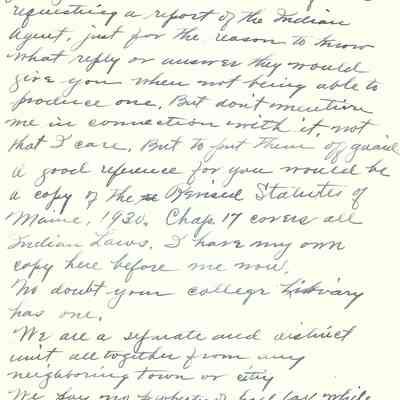 requesting a report of the Indian
Agent, just for the reason to know
what reply or answer they would
give you when not being able to
produce one. But don't mention
me in connection with it, not
that I care. But to put them of guard
a good reference for you would be
a copy of the Revised Statutes of
Maine, 1930. Chap 17 covers all
Indian Laws. I have my own
copy here before me now.
No doubt your college Library
has one.
We are a seperate and distinct
unit alltogether from any
neighboring town or city
We pay no property